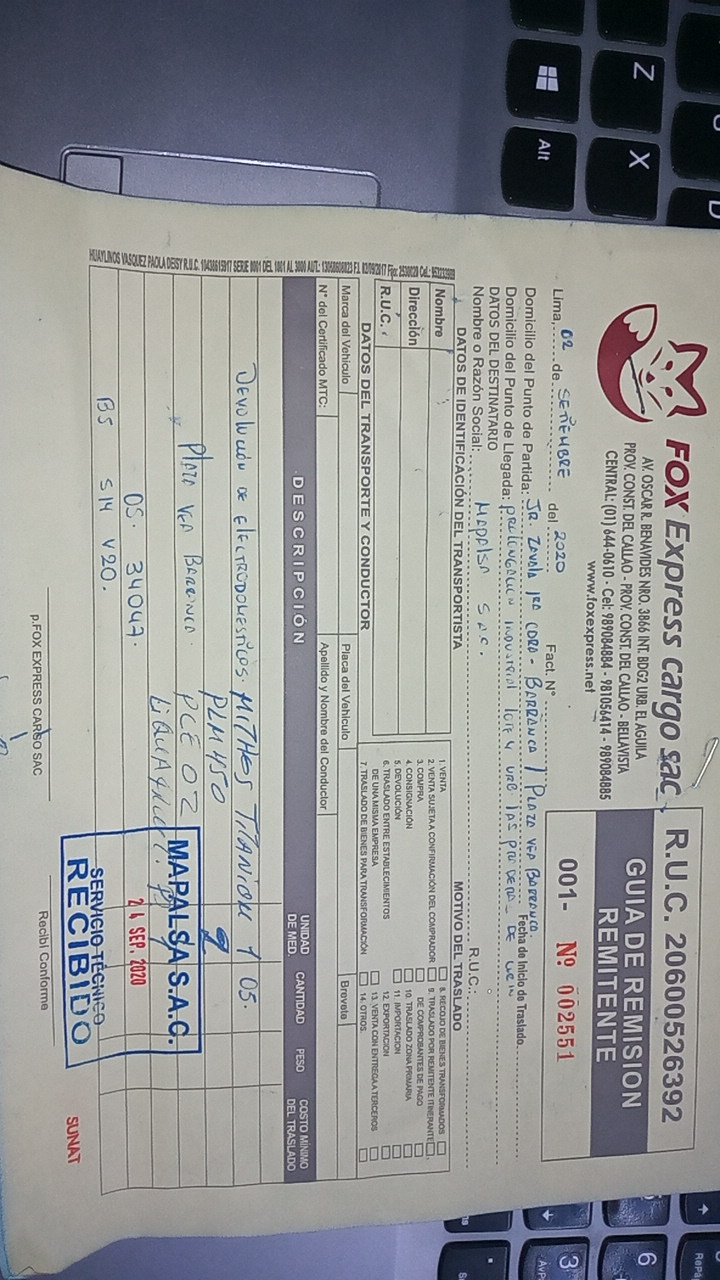 FOX Express cargo sac
AV. OSCAR R. BENAVIDES NRO. 3866 INT. BDG2 URB. EL AGUILA
PROV. CONST. DEL CALLAO - PROV. CONST. DEL CALLAO - BELLAVISTA
CENTRAL: (01) 644-0610 - Cel: 989084884 - 981056414 - 989084885
www.foxexpress.net
R.U.C. 20600526392
GUIA DE REMISION
REMITENTE
001- Nº 002551
Lima, 02 de SETIEMBRE del 2020 Fact. Nº
Fecha de Inicio de Traslado
Domicilio del Punto de Partida: JR. ZAVALA 1RA CDRA - BARRANCA / PLAZA VEA BARRANCA.
Domicilio del Punto de Llegada: PROLONGACION INDUSTRIAL LOTE 4 URB LAS PRADERA_ DE LURIN
DATOS DEL DESTINATARIO
Nombre o Razón Social: MAPALSA SAC. R.U.C.:
DATOS DE IDENTIFICACIÓN DEL TRANSPORTISTA
Nombre
Dirección
R.U.C.
DATOS DEL TRANSPORTE Y CONDUCTOR
Marca del Vehículo
Placa del Vehículo
Nº del Certificado MTC:
Apellido y Nombre del Conductor:
Brevete
MOTIVO DEL TRASLADO
1. VENTA
2. VENTA SUJETA A CONFIRMACIÓN DEL COMPRADOR
3. COMPRA
4. CONSIGNACIÓN
5. DEVOLUCIÓN
6. TRASLADO ENTRE ESTABLECIMIENTOS
DE UNA MISMA EMPRESA
7. TRASLADO DE BIENES PARA TRANSFORMACIÓN
8. RECOJO DE BIENES TRANSFORMADOS
9. TRASLADO POR REMITENTE ITINERANTE
DE COMPROBANTES DE PAGO
10. TRASLADO ZONA PRIMARIA
11. IMPORTACION
12. EXPORTACION
13. VENTA CON ENTREGA A TERCEROS
14. OTROS
DESCRIPCIÓN
UNIDAD
DE MED.
CANTIDAD
PESO
COSTO MÍNIMO
DEL TRASLADO
DEVOLUCIÓN DE ELECTRODOMESTICOS. MITHOS TITANIOU 1 05.
PLM450
PLAZA VEA BARRANCA. PCE02
OS. 34047.
B5 S14 V20.
MAPALSA S.A.C.
24 SEP. 2020
SERVICIO TÉCNICO
RECIBIDO
p.FOX EXPRESS CARGO SAC
Recibí Conforme
SUNAT
HUAYLINOS VASQUEZ PAOLA DEISY R.U.C.
Z
X
Alt
6
3